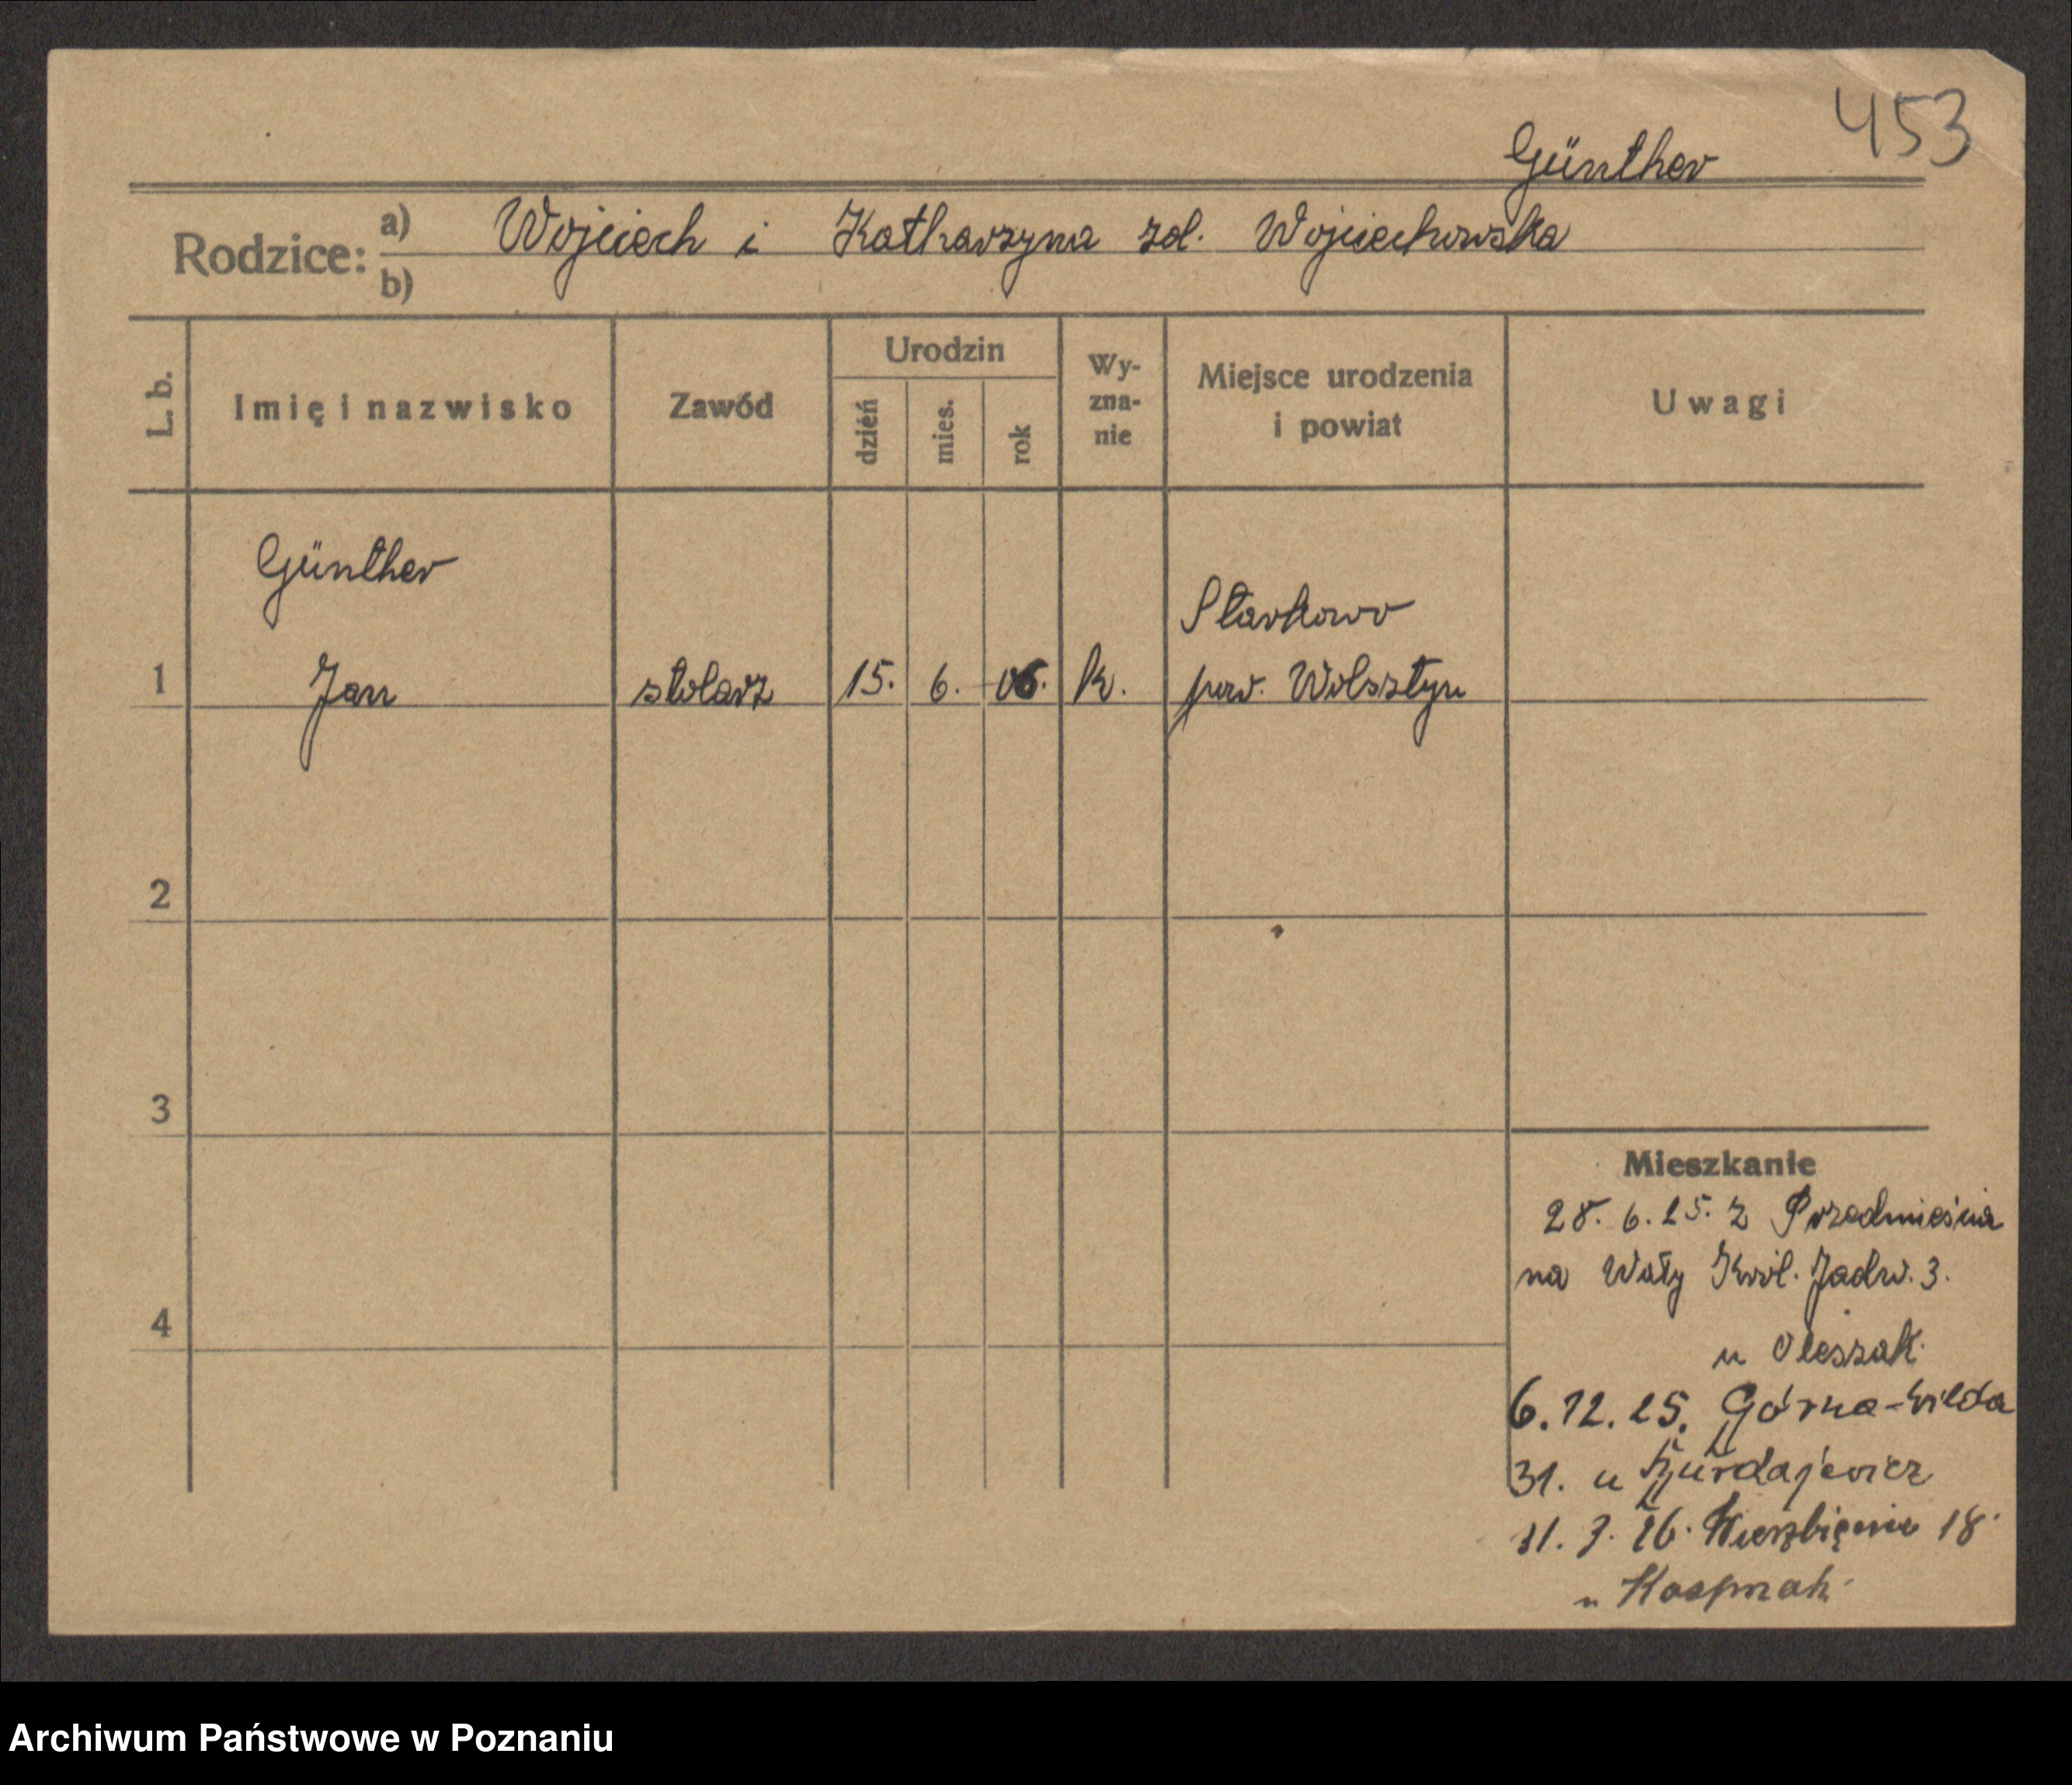 453
Günther
Rodzice: a) Wojciech i Katharzyna zd. Wojciechowska
b)
L. b. Imię i nazwisko Zawód Urodzin dzień mies. rok Wy-zna-nie Miejsce urodzenia i powiat Uwagi
Günther Starkowo
1 Jan stolarz 15. 6. 06. k. pow. Wolsztyn
2
3
Mieszkanie
28. 6. 25. z Przedmieścia
na Wały Król. Jadw. 3.
4
u Oleszak.
6. 12. 25. Górna-Wilda
31. u
11. 3. 26. Wierzbięcice 18.
u Kasprzak.
Archiwum Państwowe w Poznaniu